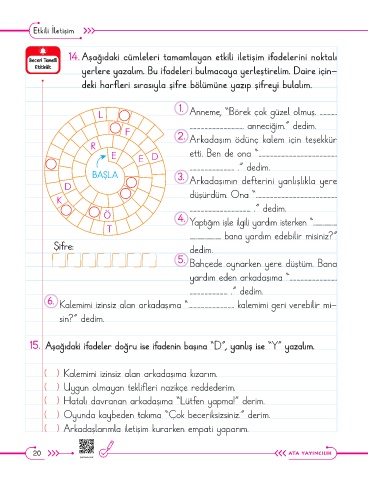 Etkili İletişim
Beceri Temelli
Etkinlik
14. Aşağıdaki cümleleri tamamlayan etkili iletişim ifadelerini noktalı
yerlere yazalım. Bu ifadeleri bulmacaya yerleştirelim. Daire için-
deki harfleri sırasıyla şifre bölümüne yazıp şifreyi bulalım.
L
F
R
E E D
BAŞLA
D
K
Ö
T
Şifre:
1. Anneme, "Börek çok güzel olmuş. ............
.............................. anneciğim." dedim.
2. Arkadaşım ödünç kalem için teşekkür
etti. Ben de ona "..............................
.............................." dedim.
3. Arkadaşımın defterini yanlışlıkla yere
düşürdüm. Ona "..............................
.............................." dedim.
4. Yaptığım işle ilgili yardım isterken "............
.................. bana yardım edebilir misiniz?"
dedim.
5. Bahçede oynarken yere düştüm. Bana
yardım eden arkadaşıma "........................
........................." dedim.
6. Kalemimi izinsiz alan arkadaşıma "........................ kalemimi geri verebilir mi-
sin?" dedim.
15. Aşağıdaki ifadeler doğru ise ifadenin başına "D", yanlış ise "Y" yazalım.
( ) Kalemimi izinsiz alan arkadaşıma kızarım.
( ) Uygun olmayan teklifleri nazikçe reddederim.
( ) Hatalı davranan arkadaşıma "Lütfen yapma!" derim.
( ) Oyunda kaybeden takıma "Çok beceriksizsiniz." derim.
( ) Arkadaşlarımla iletişim kurarken empati yaparım.
20
ATA YAYINCILIK